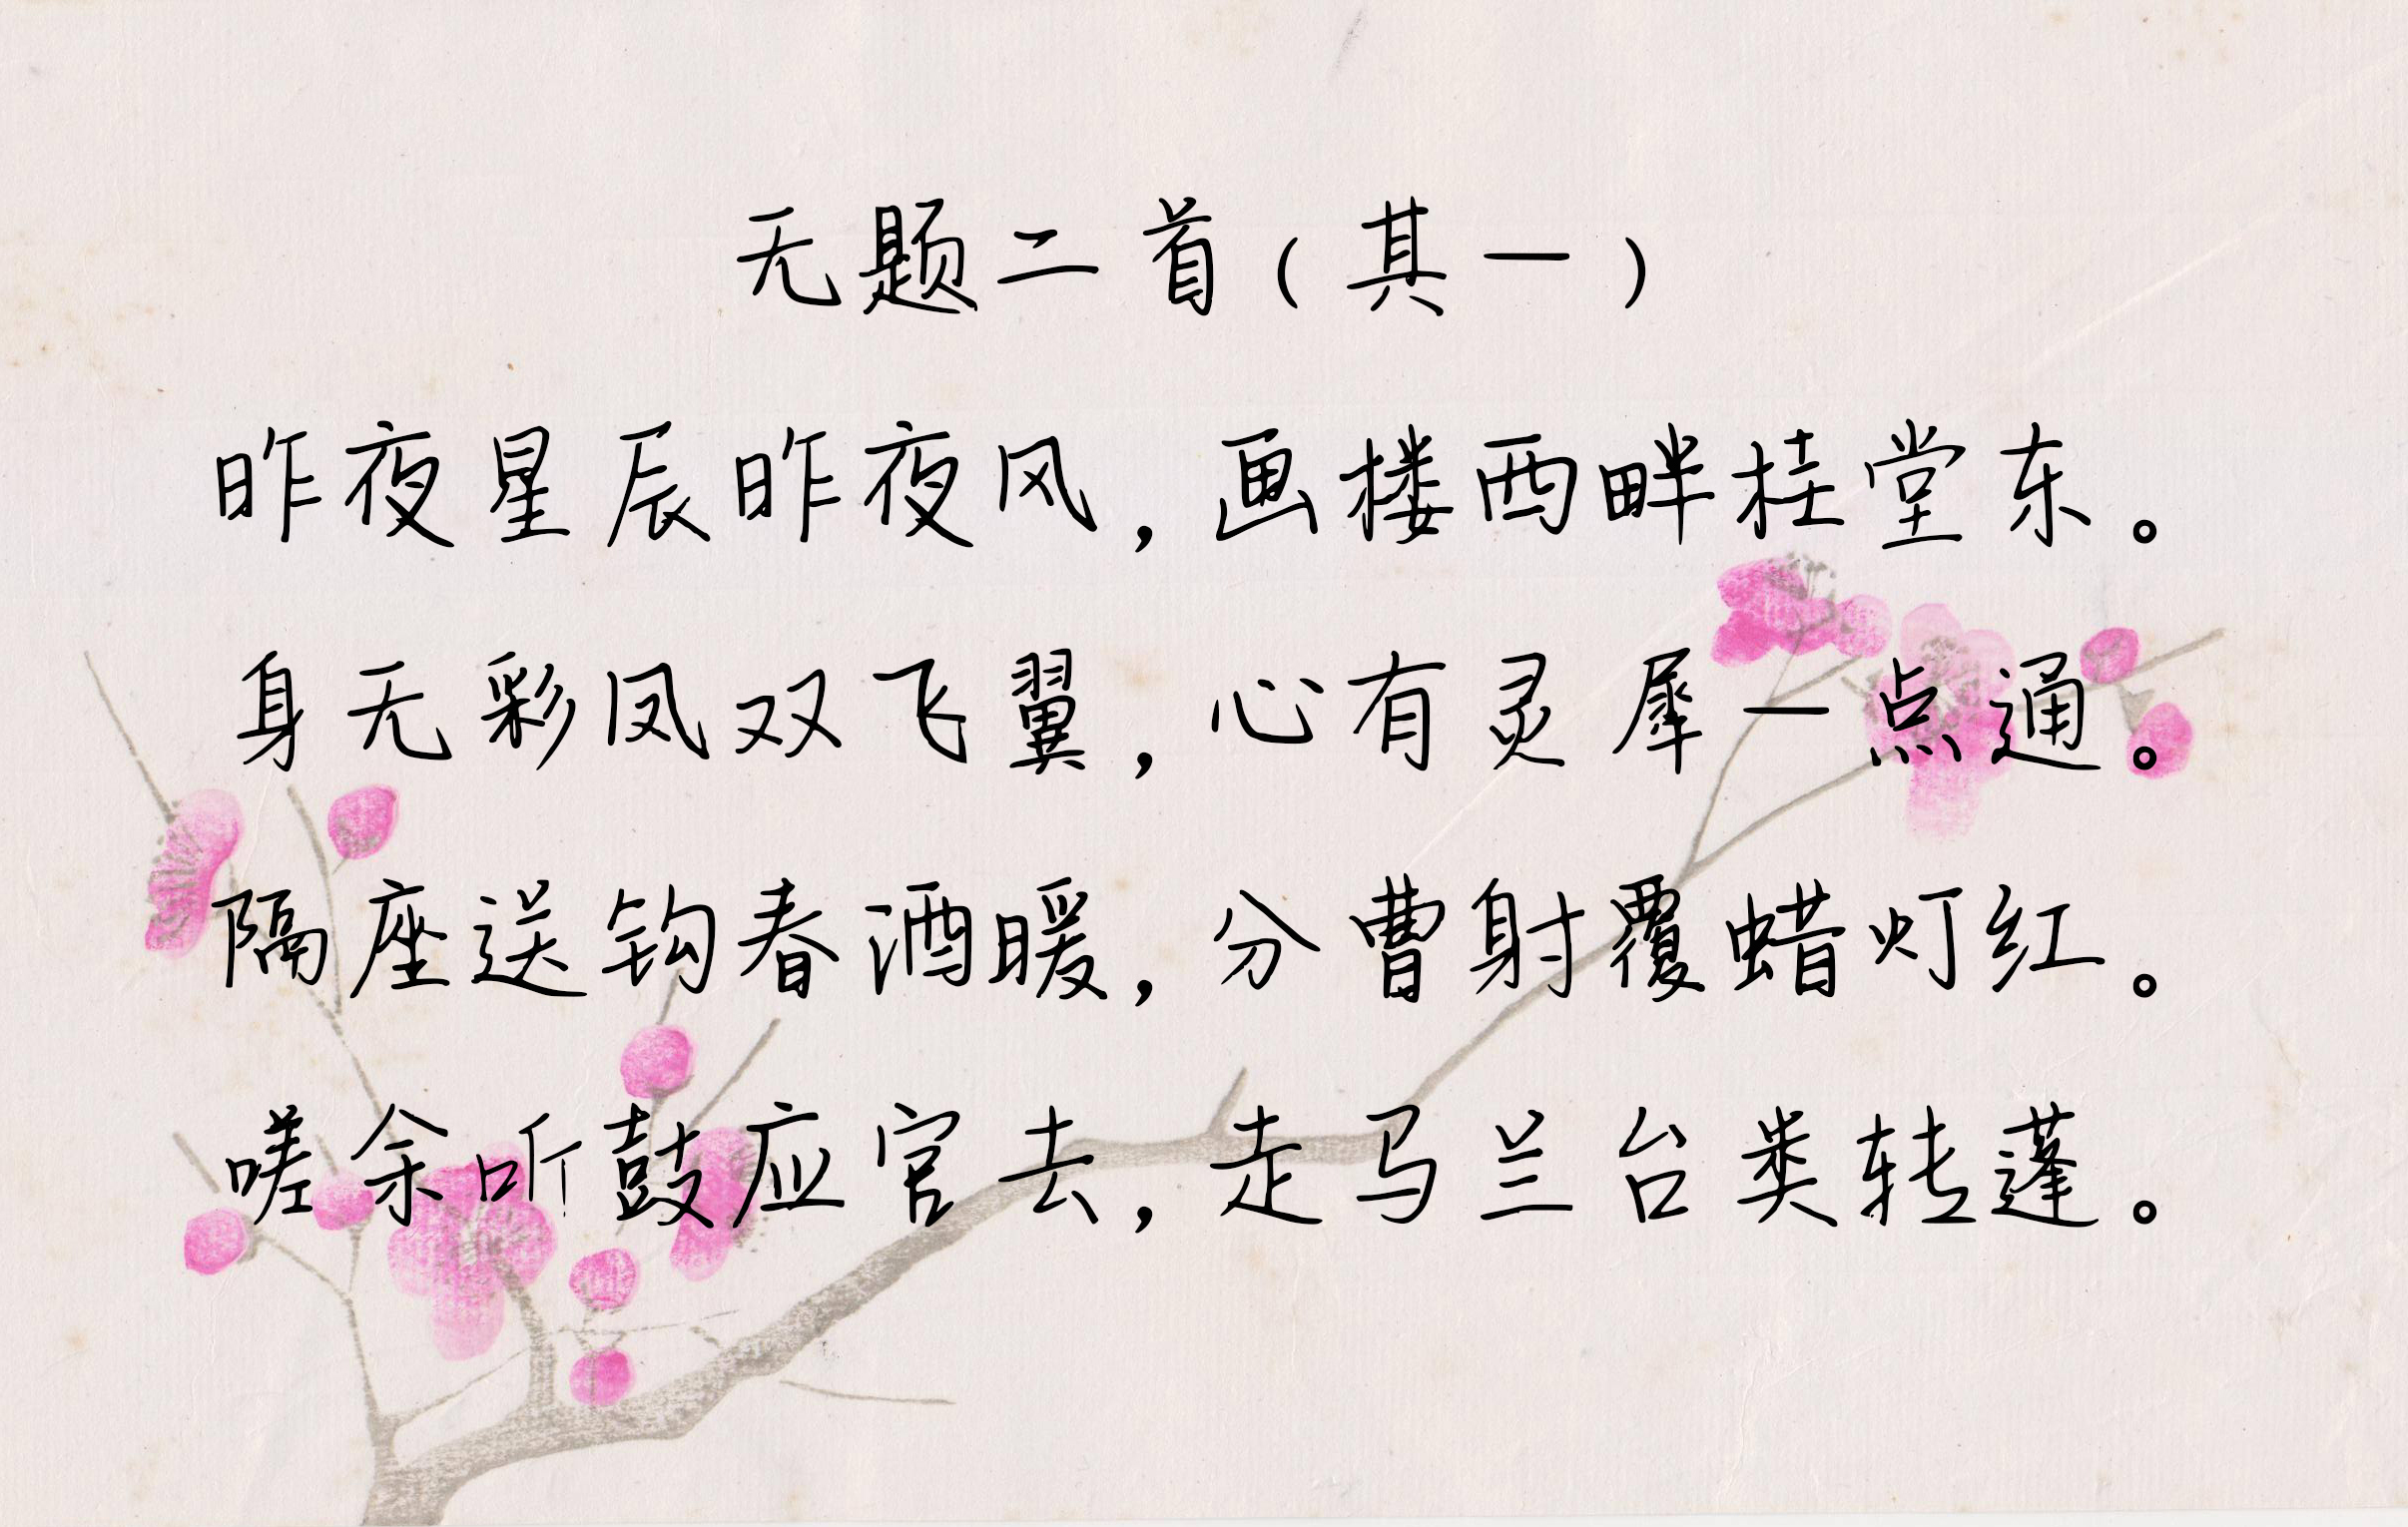 无题二首（其一）
昨夜星辰昨夜风，画楼西畔桂堂东。
身无彩凤双飞翼，心有灵犀一点通。
隔座送钩春酒暖，分曹射覆蜡灯红。
嗟余听鼓应官去，走马兰台类转蓬。